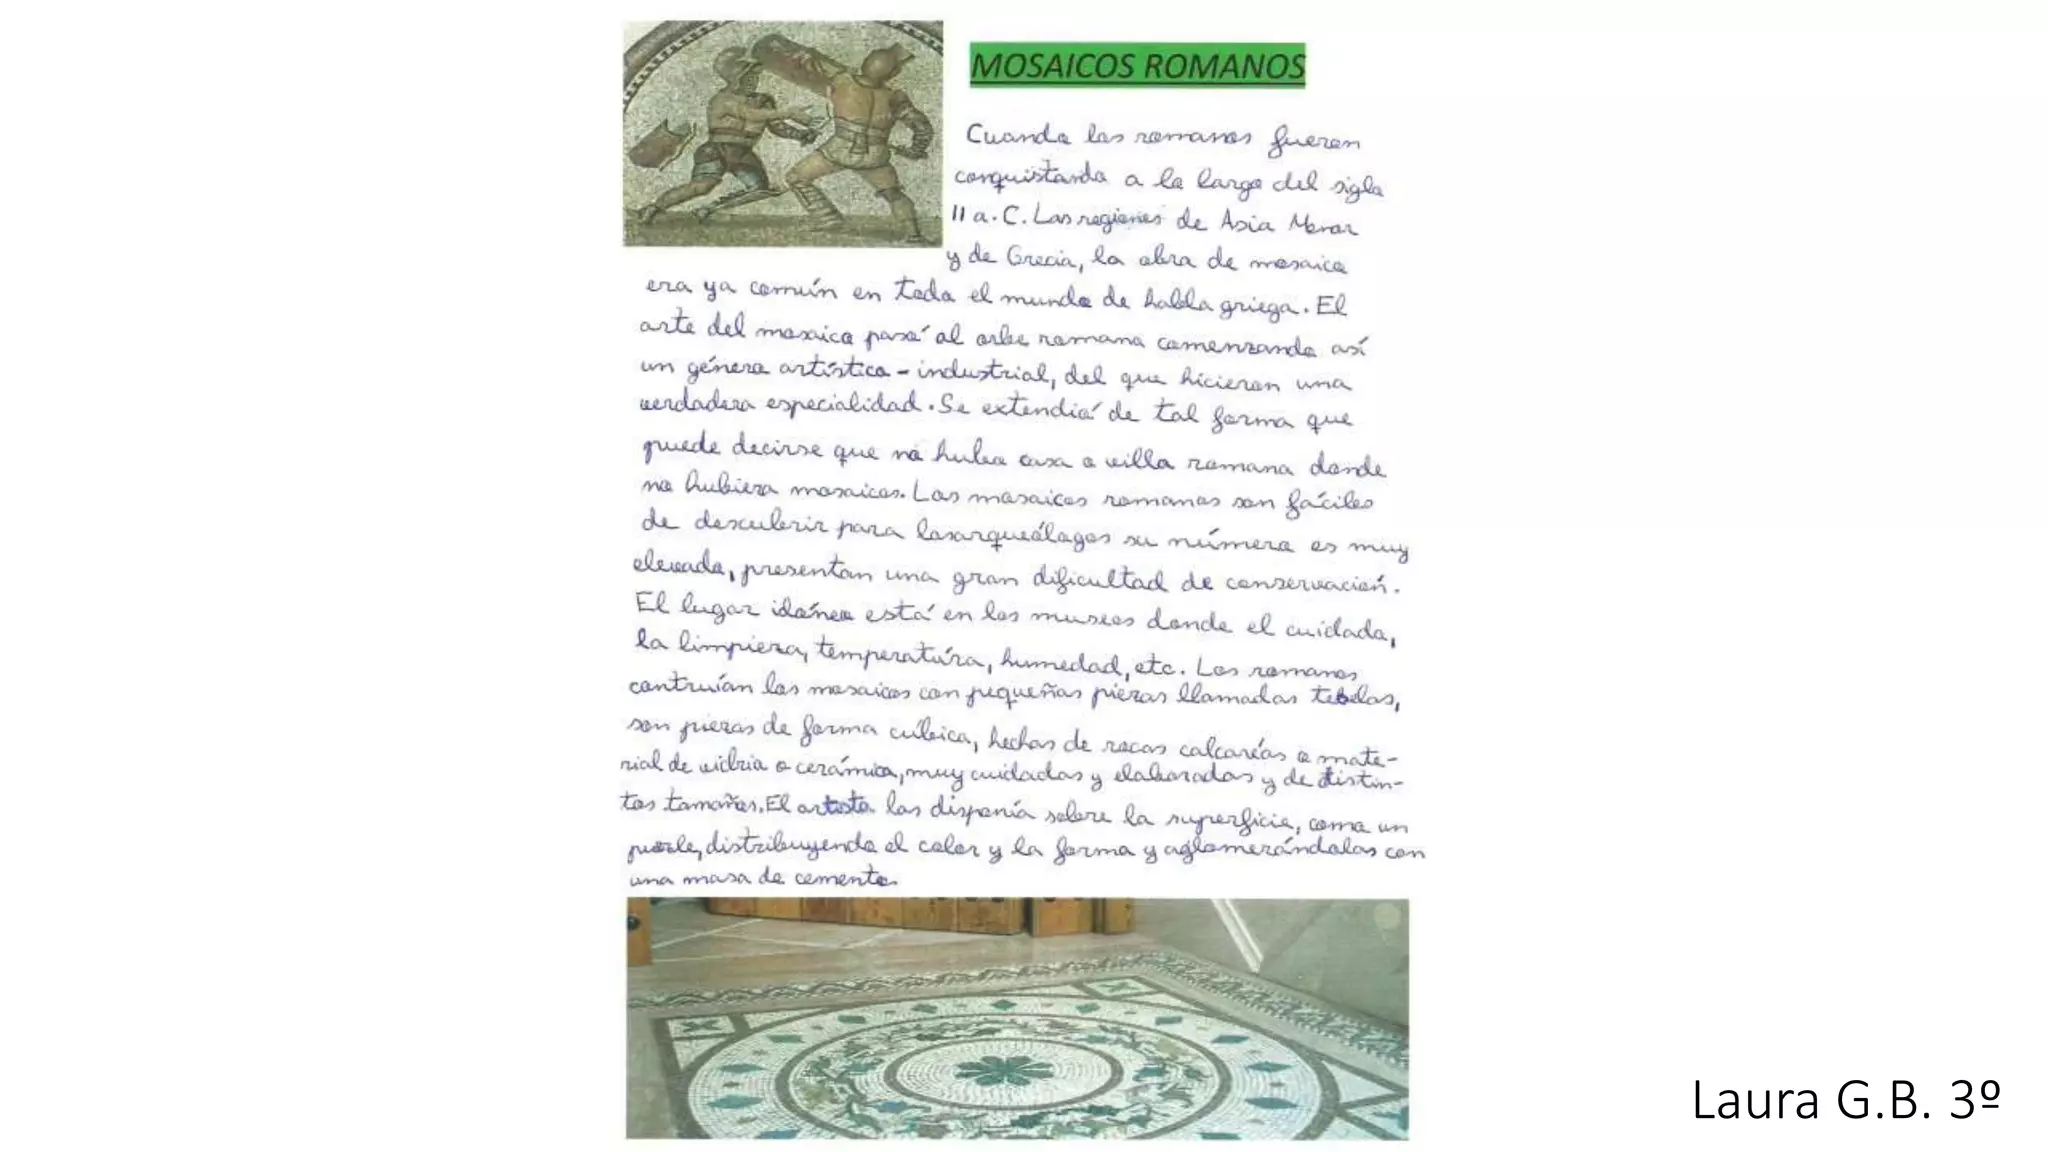 MOSAICOS ROMANOS
Cuando los romanos fueron
conquistando a lo largo del siglo
II a. C. Las regiones de Asia Menor
y de Grecia, la obra de mosaico
era ya común en todo el mundo de habla griega. El
arte del mosaico pasó al orbe romano comenzando así
un género artístico - industrial, del que hicieron una
verdadera especialidad. Se extendió de tal forma que
puede decirse que no hubo casa o villa romana donde
no hubiera mosaicos. Los mosaicos romanos son fáciles
de descubrir para losarqueólogos su número es muy
elevado, presentan una gran dificultad de conservación.
El lugar idóneo está en los museos donde el cuidado,
la limpieza, temperatúra, humedad, etc. Los romanos
contruían los mosaicos con pequeñas piezas llamadas tebelas,
son piezas de forma cúbica, hechas de rocas calcaréas o mate-
rial de vidrio o cerámica, muy cuidadas y elaboradas y de distin-
tos tamaños. El artista las disponía sobre la superficie, como un
puzle, distribuyendo el color y la forma y aglomerándolas con
una masa de cemento.
Laura G.B. 3º